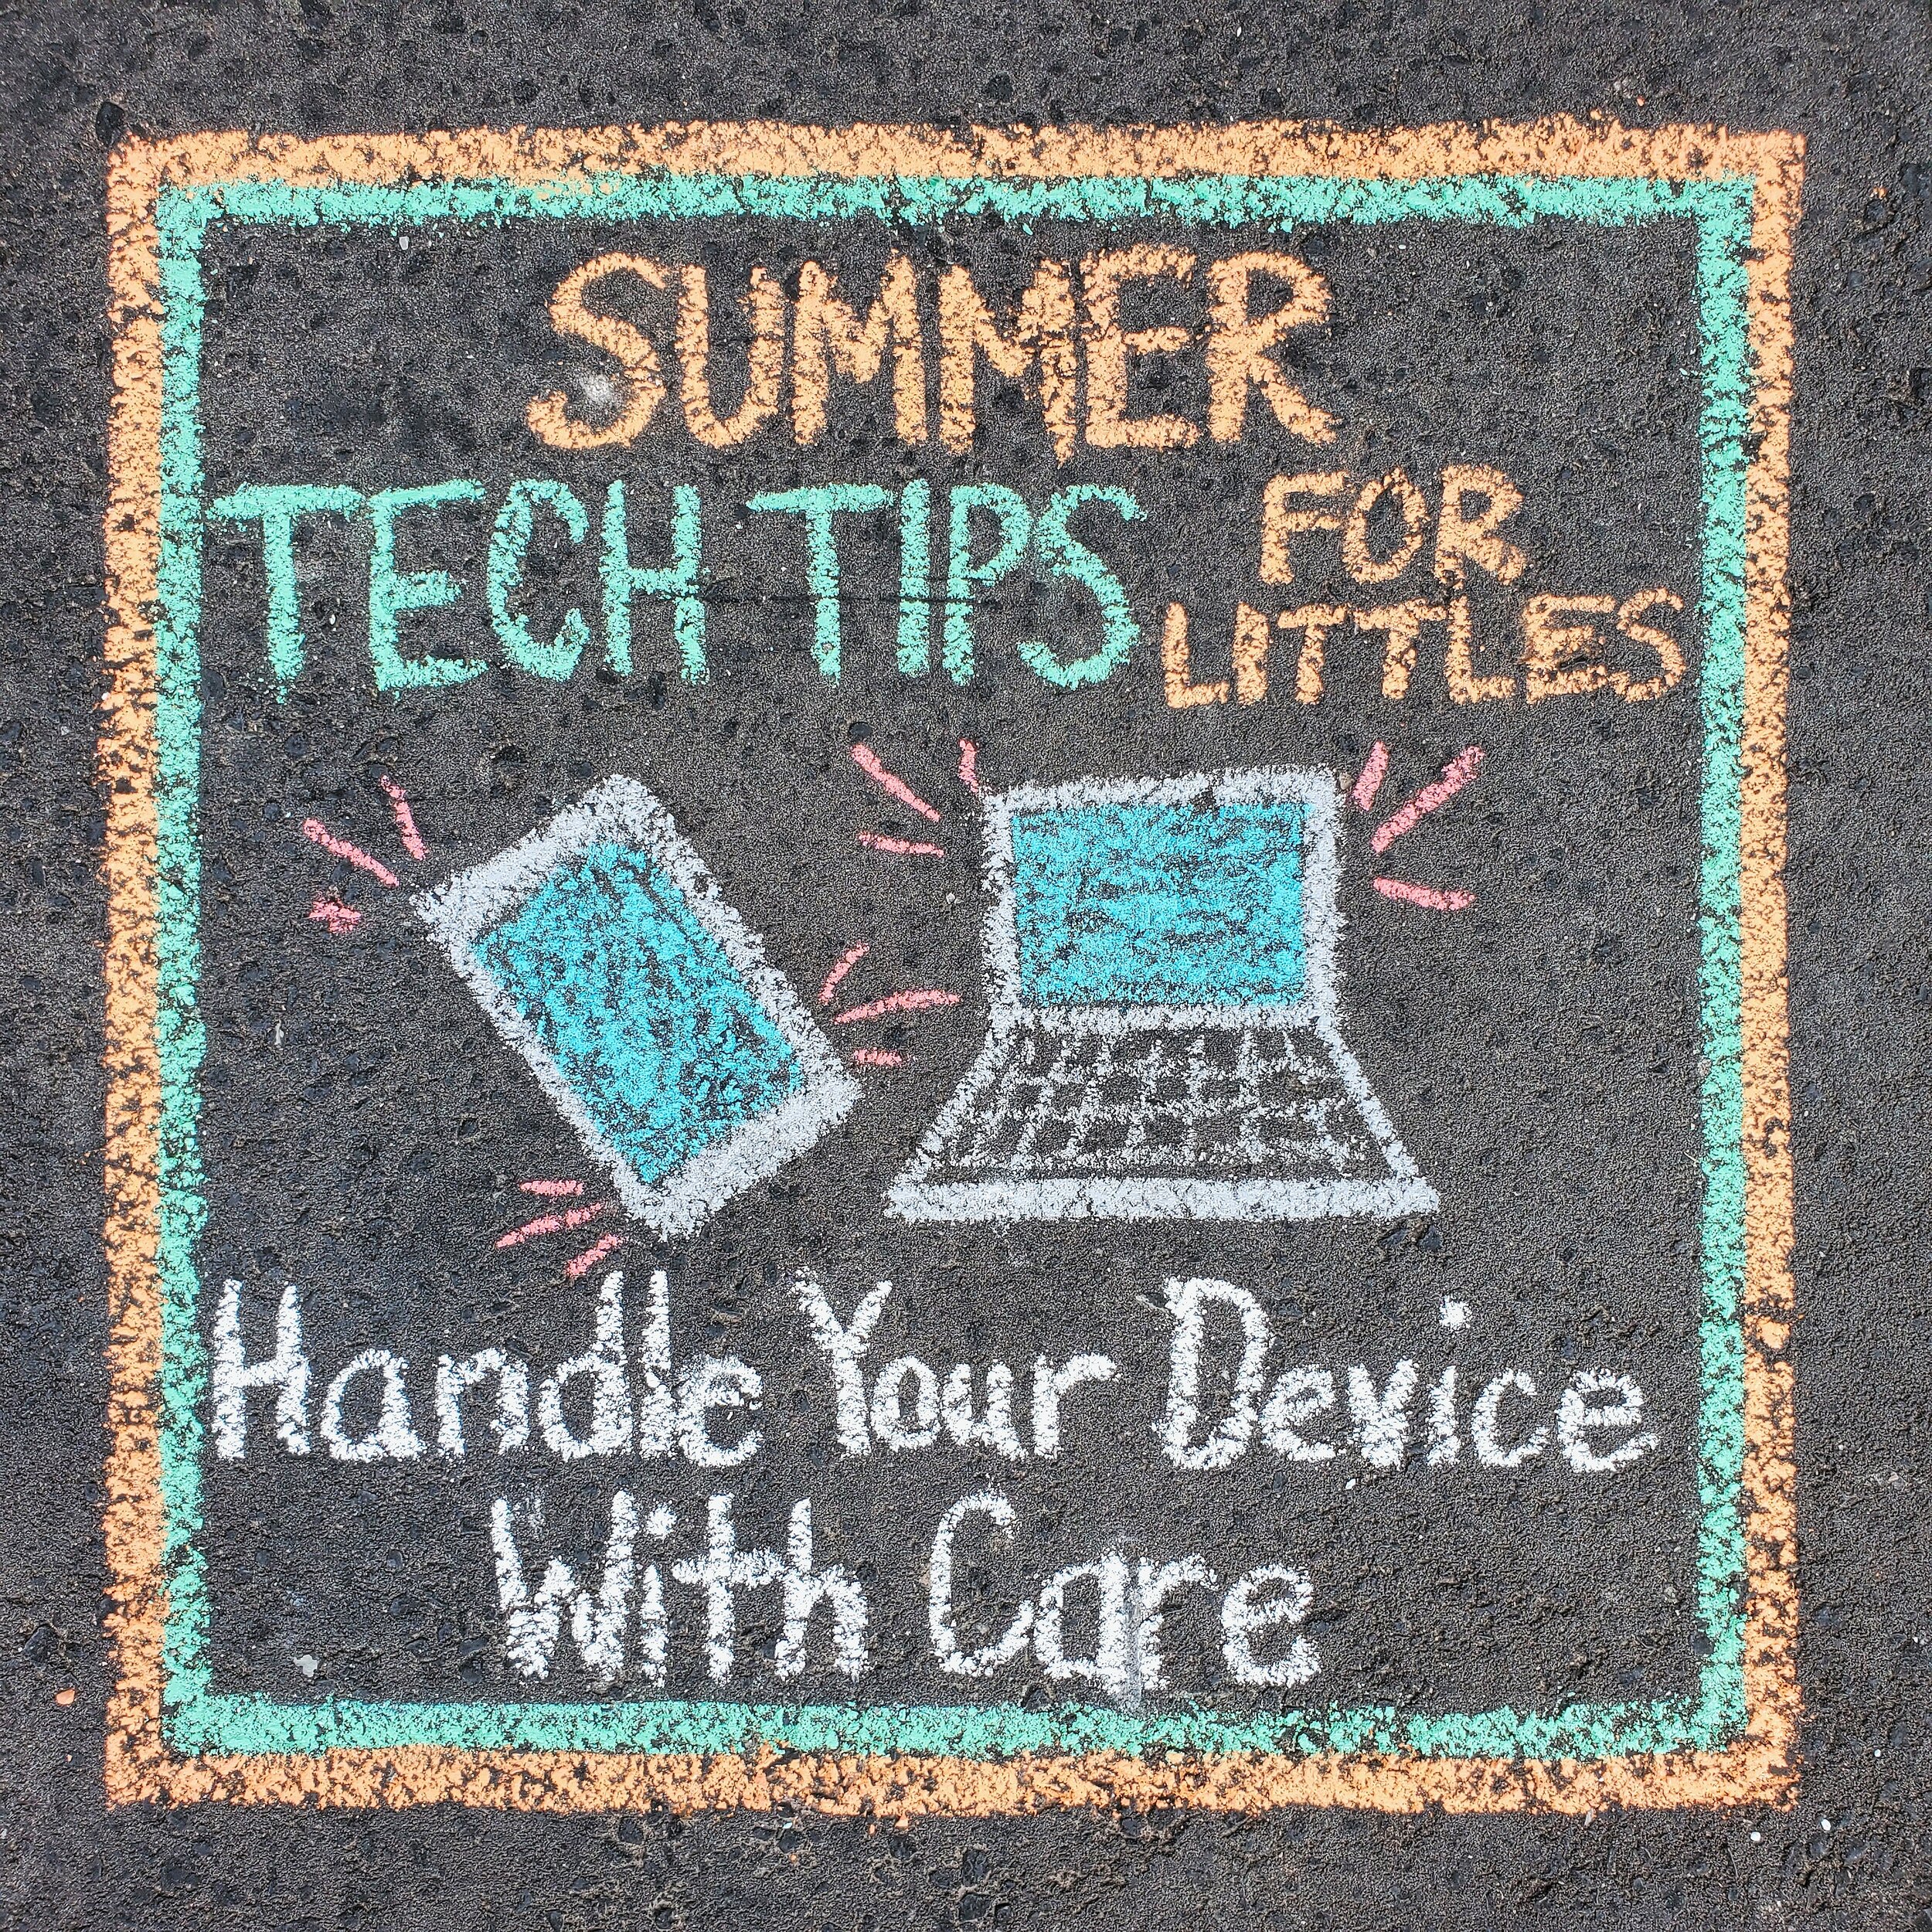 SUMMER
TECH TIPS FOR
LITTLES
Handle Your Device
With Care